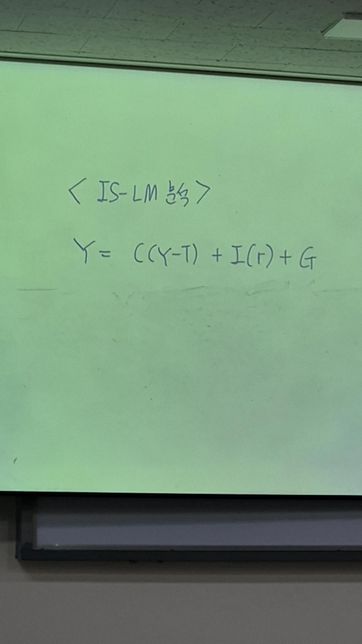 < IS-LM 분석 >
Y = C(Y-T) + I(r) + G